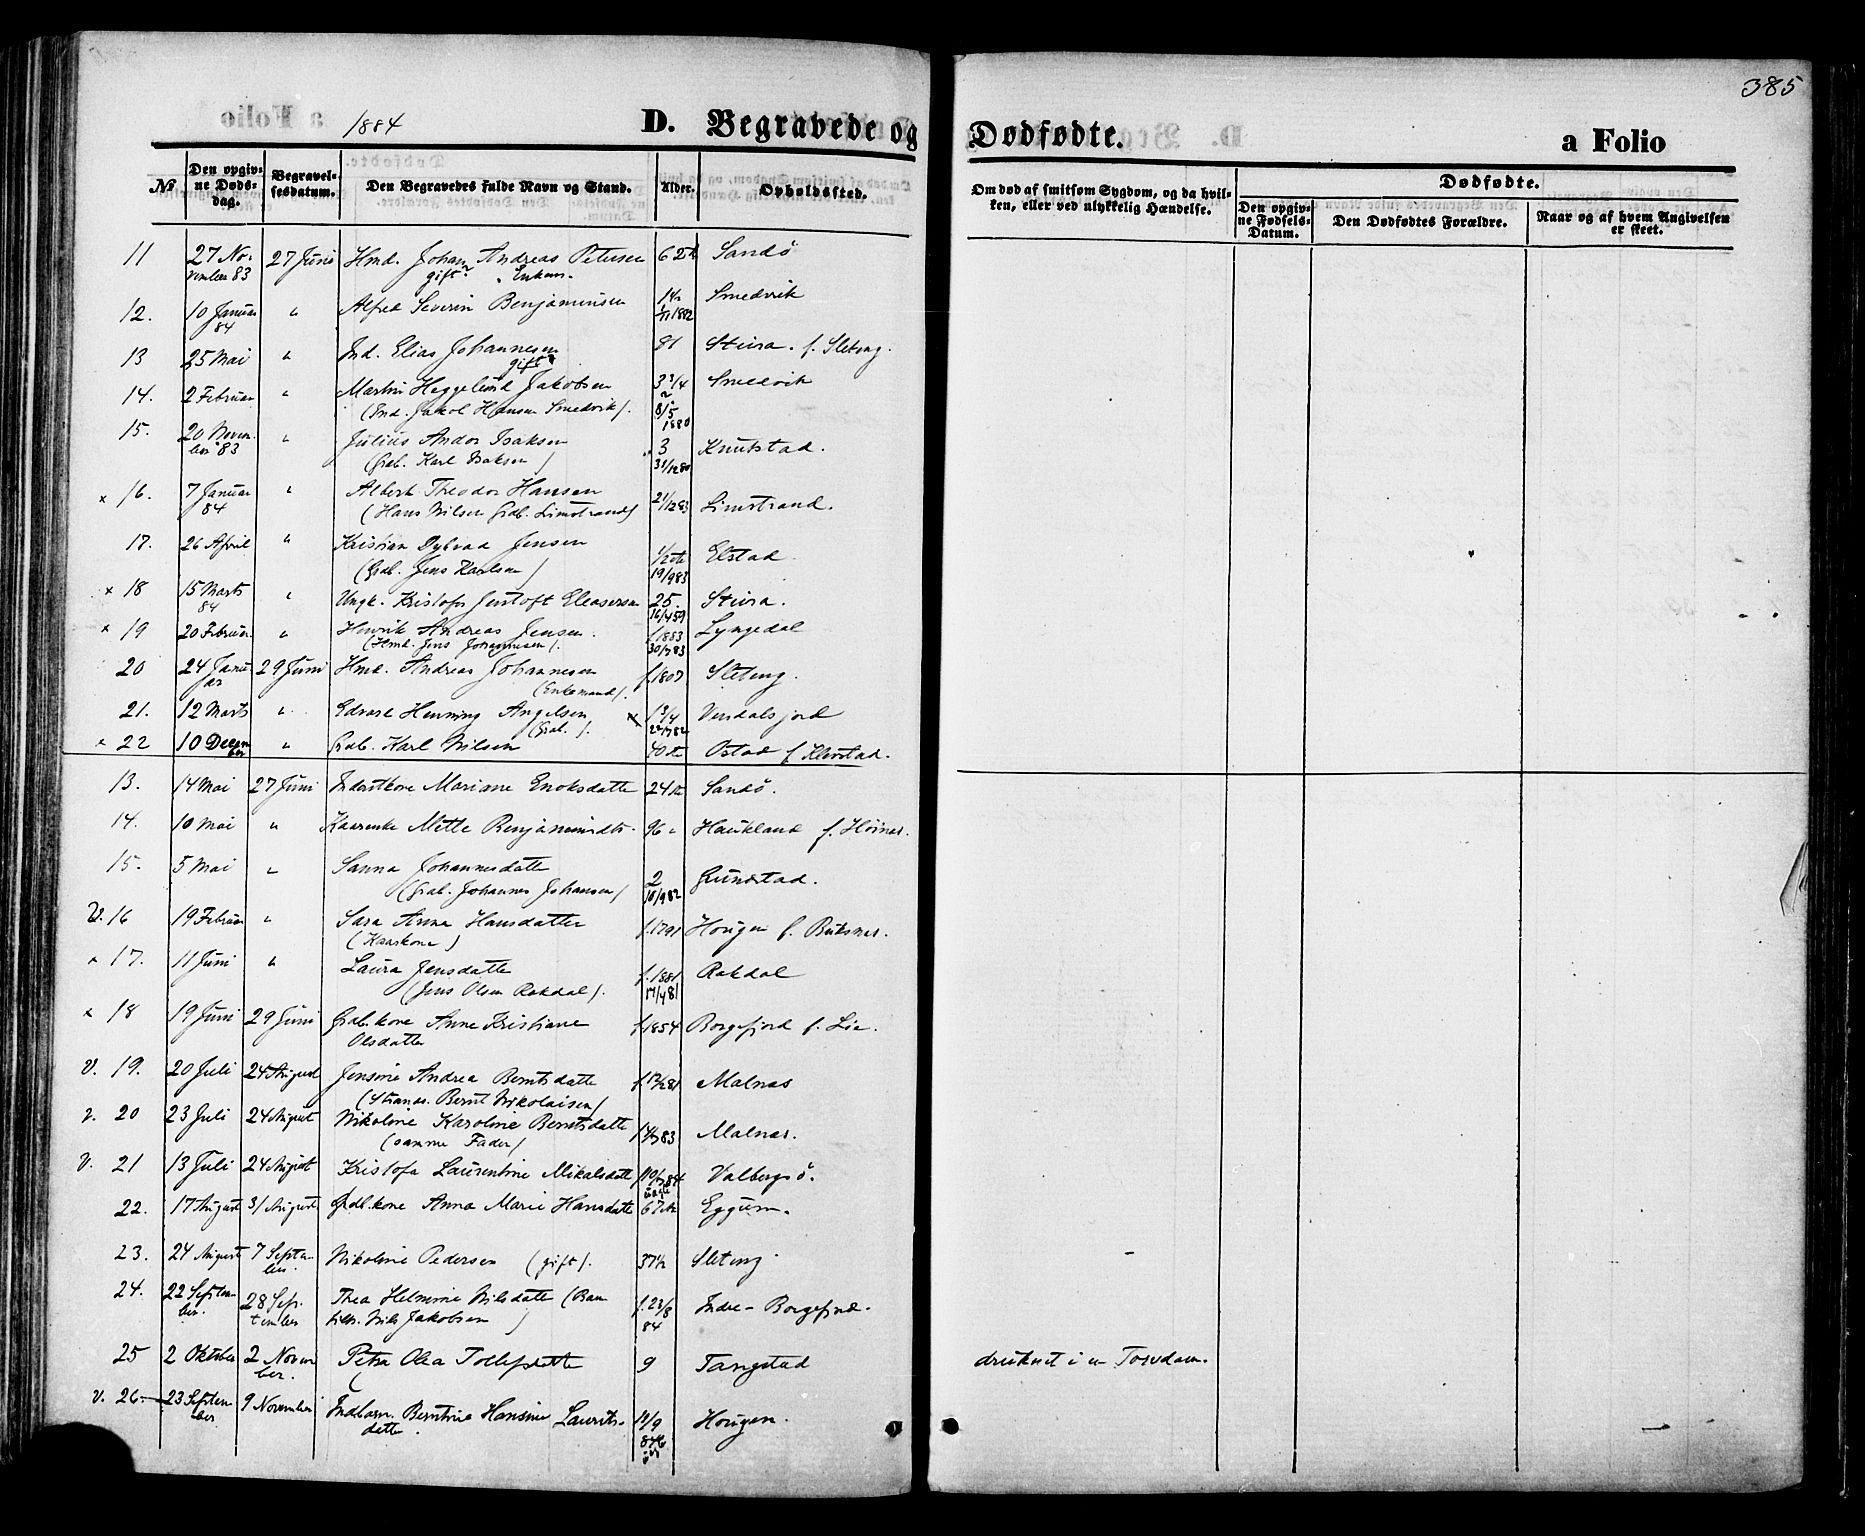 385
1884 D. Begravede og Dødfødte. a Folio
№ Den opgivne Dødsdag. Begravelsesdatum. Den Begravedes fulde Navn og Stand. Alder. Opholdssted. Om død af smitsom Sygdom, og da hvilken, eller ved ulykkelig Hændelse. Dødfødte.
Den opgivne Fødsels-Datum. Den Dødfødtes Forældre. Naar og af hvem Angivelsen er skeet.
11 27 November 83 27 Juni Hmd. Johan Andreas Petersen 62 Sandö
gift Enkem.
12. 10 Januar 84 " Alfred Severin Benjaminsen 1882 Smedvik
13 25 Mai " Ind. Elias Johannesen 81 Steira. f. Sleteng.
gift
14. 2 Februar " Martin Heggelund Jakobsen 3 3/4 Smedvik
(Ind. Jakob Hansen Smedvik). 8/5 1880
15. 20 November 83 " Julius Andor Isaksen 3 Knutstad.
(Grdb. Karl Isaksen) 31/12 80
x 16. 7 Januar 84 " Albert Theodor Hansen 21/12 83 Limstrand.
(Hans Nilsen Grdb. Limstrand)
17. 26 April " Kristian Dybvad Jensen 1/2 Elstad.
(Grdb. Jens Karlsen) 19/9 83
x 18 15 Marts 84 " Ungk. Kristofer Jentoft Eleasersen 25. Steira.
16/4 59
x 19 20 Februar " Henrik Andreas Jensen. f. 1883 Lyngedal
(Hmd. Jens Johannesen). 30/7 83
20 24 Januar 29 Juni Hmd. Andreas Johannesen f. 1807 Sleteng.
(Enkemand).
21. 12 Marts " Edvard Henning Angelsen 1 3/4 Vendalsjord
(Grdb.). 22/7 82
x 22 10 Decemb " Grdb. Karl Nilsen 40 Ostad f Klevstad.
13. 14 Mai 27 Juni Inderstkone Mariane Enoksdatte 24 Sandö.
14. 10 Mai " Kaarenke Mette Benjamindtr. 96 " Haukland f. Höines.
15. 5 Mai " Sanna Johannesdatte 2 Grundstad.
(Grdb. Johannes Johansen) 10/9 82
V. 16 19 Februar " Sara Anna Hansdatter f. 1791 Hougen f. Buksnes.
(Kaarkone)
x 17. 11 Juni " Laura Jensdatte f. 1881 Rokdal
(Jens Olsen Rokdal). 17/4 81
x 18 19 Juni 29 Juni Grdb.kone Anne Kristiane f. 1854 Borgefjord f. Lie.
Olsdatte
V. 19. 20 Juli 24 August Jensine Andrea Berntsdatte Malnes
(Strands. Bernt Nikolaisen)
v. 20 23 Juli 24 August Nikoline Karoline Berntsdatte 83 Malnes.
(samme Fader)
V. 21 13 Juli 24 August Kristofa Laurentine Mikalsdatte 10/7 84 Valbergsö.
uægte
22. 17 August 31 August Grdb.kone Anna Marie Hansdatte 67 Eggum.
23. 24 August 7 September Nikoline Pedersen (gift). 37 1/2 Sleteng
24. 22 September. 28 September Thea Helmine Nilsdatte f. 23/8 84 Indre-Borgefjord.
Nils Jakobsen)
25 2 Oktober 2 November. Petra Olea Tollefsdatte 9 Tangstad druknet i en Torvdam.
v. 26. 23 September 9 November Indbarn. Berntine Hansine Laurits- Hougen.
datte.